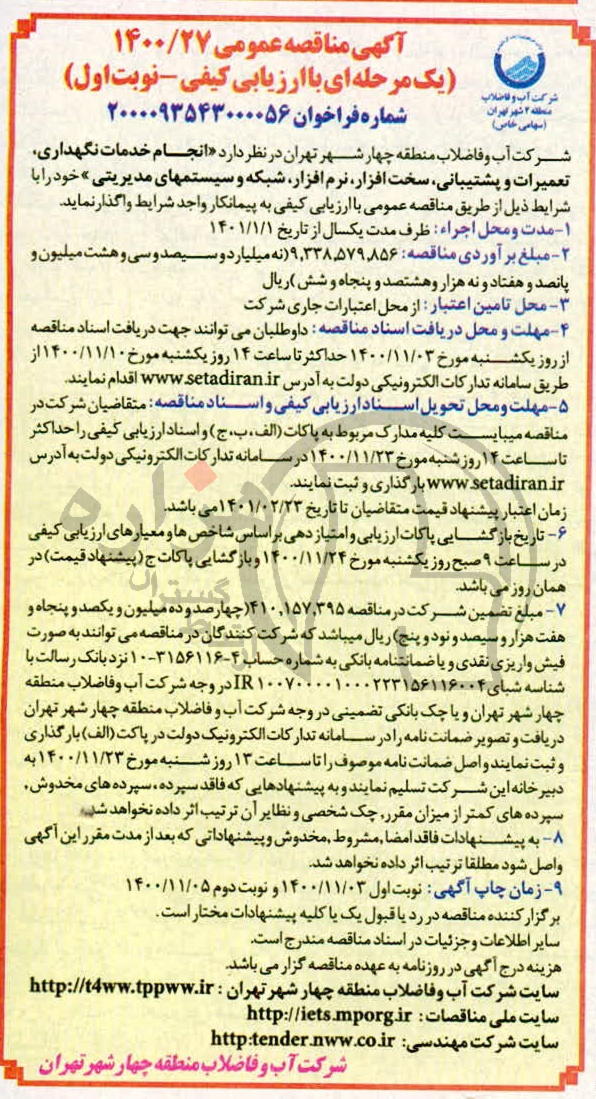 آگهی مناقصه عمومی ۱۴۰۰/۲۷
(یک مرحله‌ای با ارزیابی کیفی – نوبت اول)
شماره فراخوان ۲۰۰۰۰۹۳۵۴۳۰۰۰۰۵۶
شرکت آب و فاضلاب
منطقه ۴ شهر تهران
(سهامی خاص)
شرکت آب و فاضلاب منطقه چهار شهر تهران در نظر دارد «انجام خدمات نگهداری،
تعمیرات و پشتیبانی، سخت افزار، نرم افزار، شبکه و سیستمهای مدیریتی» خود را با
شرایط ذیل از طریق مناقصه عمومی با ارزیابی کیفی به پیمانکار واجد شرایط واگذار نماید.
۱- مدت و محل اجراء: ظرف مدت یکسال از تاریخ ۱۴۰۱/۱/۱
۲- مبلغ برآوردی مناقصه: ۹,۳۳۸,۵۷۹,۸۵۶(نه میلیارد و سیصد و سی و هشت میلیون و
پانصد و هفتاد و نه هزار وهشتصد و پنجاه و شش)ریال
۳- محل تامین اعتبار: از محل اعتبارات جاری شرکت
۴- مهلت و محل دریافت اسناد مناقصه: داوطلبان می توانند جهت دریافت اسناد مناقصه
از روز یکشنبه مورخ ۱۴۰۰/۱۱/۰۳ حداکثر تا ساعت ۱۴ روز یکشنبه مورخ ۱۴۰۰/۱۱/۱۰ از
طریق سامانه تدارکات الکترونیکی دولت به آدرس www.setadiran.ir اقدام نمایند.
۵- مهلت و محل تحویل اسناد ارزیابی کیفی و اسناد مناقصه: متقاضیان شرکت در
مناقصه میبایست کلیه مدارک مربوط به پاکات (الف،ب،ج) و اسناد ارزیابی کیفی را حداکثر
تا ساعت ۱۴ روز شنبه مورخ ۱۴۰۰/۱۱/۲۳ در سامانه تدارکات الکترونیکی دولت به آدرس
www.setadiran.ir بارگذاری و ثبت نمایند.
زمان اعتبار پیشنهاد قیمت متقاضیان تا تاریخ ۱۴۰۱/۰۲/۲۳ می باشد.
۶- تاریخ بازگشایی پاکات ارزیابی و امتیاز دهی بر اساس شاخص ها و معیارهای ارزیابی کیفی
در ساعت ۹ صبح روز یکشنبه مورخ ۱۴۰۰/۱۱/۲۴ و بازگشایی پاکات ج (پیشنهاد قیمت) در
همان روز می باشد.
۷- مبلغ تضمین شرکت در مناقصه ۴۱۰,۱۵۷,۳۹۵(چهارصد و ده میلیون و یکصد و پنجاه و
هفت هزار و سیصد و نود و پنج) ریال میباشد که شرکت کنندگان در مناقصه می توانند به صورت
فیش واریزی نقدی و یا ضمانتنامه بانکی به شماره حساب ۴-۳۱۵۶۱۱۶-۱۰ نزد بانک رسالت با
شناسه شبای IR ۱۰۰۷۰۰۰۰۱۰۰۰۲۲۳۱۵۶۱۱۶۰۰۴ در وجه شرکت آب وفاضلاب منطقه
چهار شهر تهران و یا چک بانکی تضمینی در وجه شرکت آب و فاضلاب منطقه چهار شهر تهران
دریافت و تصویر ضمانت نامه را در سامانه تدارکات الکترونیک دولت در پاکت (الف) بارگذاری
و ثبت نمایند و اصل ضمانت نامه موصوف را تا ساعت ۱۳ روز شنبه مورخ ۱۴۰۰/۱۱/۲۳ به
دبیرخانه این شرکت تسلیم نمایند و به پیشنهادهایی که فاقد سپرده ، سپرده های مخدوش,
سپرده های کمتر از میزان مقرر, چک شخصی و نظایر آن ترتیب اثر داده نخواهد شد.
۸- به پیشنهادات فاقد امضا, مشروط ,مخدوش و پیشنهاداتی که بعد از مدت مقرر این آگهی
واصل شود مطلقا ترتیب اثر داده نخواهد شد.
۹- زمان چاپ آگهی: نوبت اول ۱۴۰۰/۱۱/۰۳ و نوبت دوم ۱۴۰۰/۱۱/۰۵
برگزار کننده مناقصه در رد یا قبول یک یا کلیه پیشنهادات مختار است.
سایر اطلاعات وجزئیات در اسناد مناقصه مندرج است.
هزینه درج آگهی در روزنامه به عهده مناقصه گزار می باشد.
سایت شرکت آب و فاضلاب منطقه چهار شهر تهران : http://t4ww.tppww.ir
سایت ملی مناقصات: http://iets.mporg.ir
سایت شرکت مهندسی: http:tender.nww.co.ir
شرکت آب و فاضلاب منطقه چهار شهر تهران